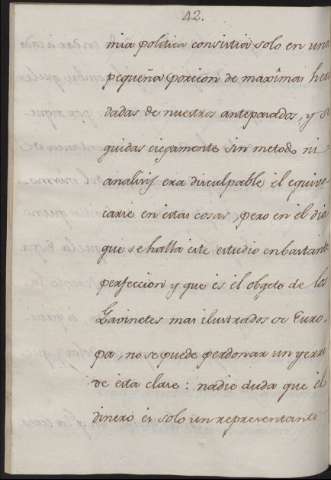 42.
mia politica consistia solo en una
pequeña porcion de maximas here
dadas de nuestros antepasados, y se
guidas ciegamente sin metodo ni
analisis era disculpable el equivo
carse en estas cosas, pero en el dia
que se halla este estudio en bastante
perfeccion y que es el objeto de los
Gavinetes mas ilustrados de Euro
pa, no se puede perdonar un yerro
de esta clase: nadie duda que el
dinero es solo un representante